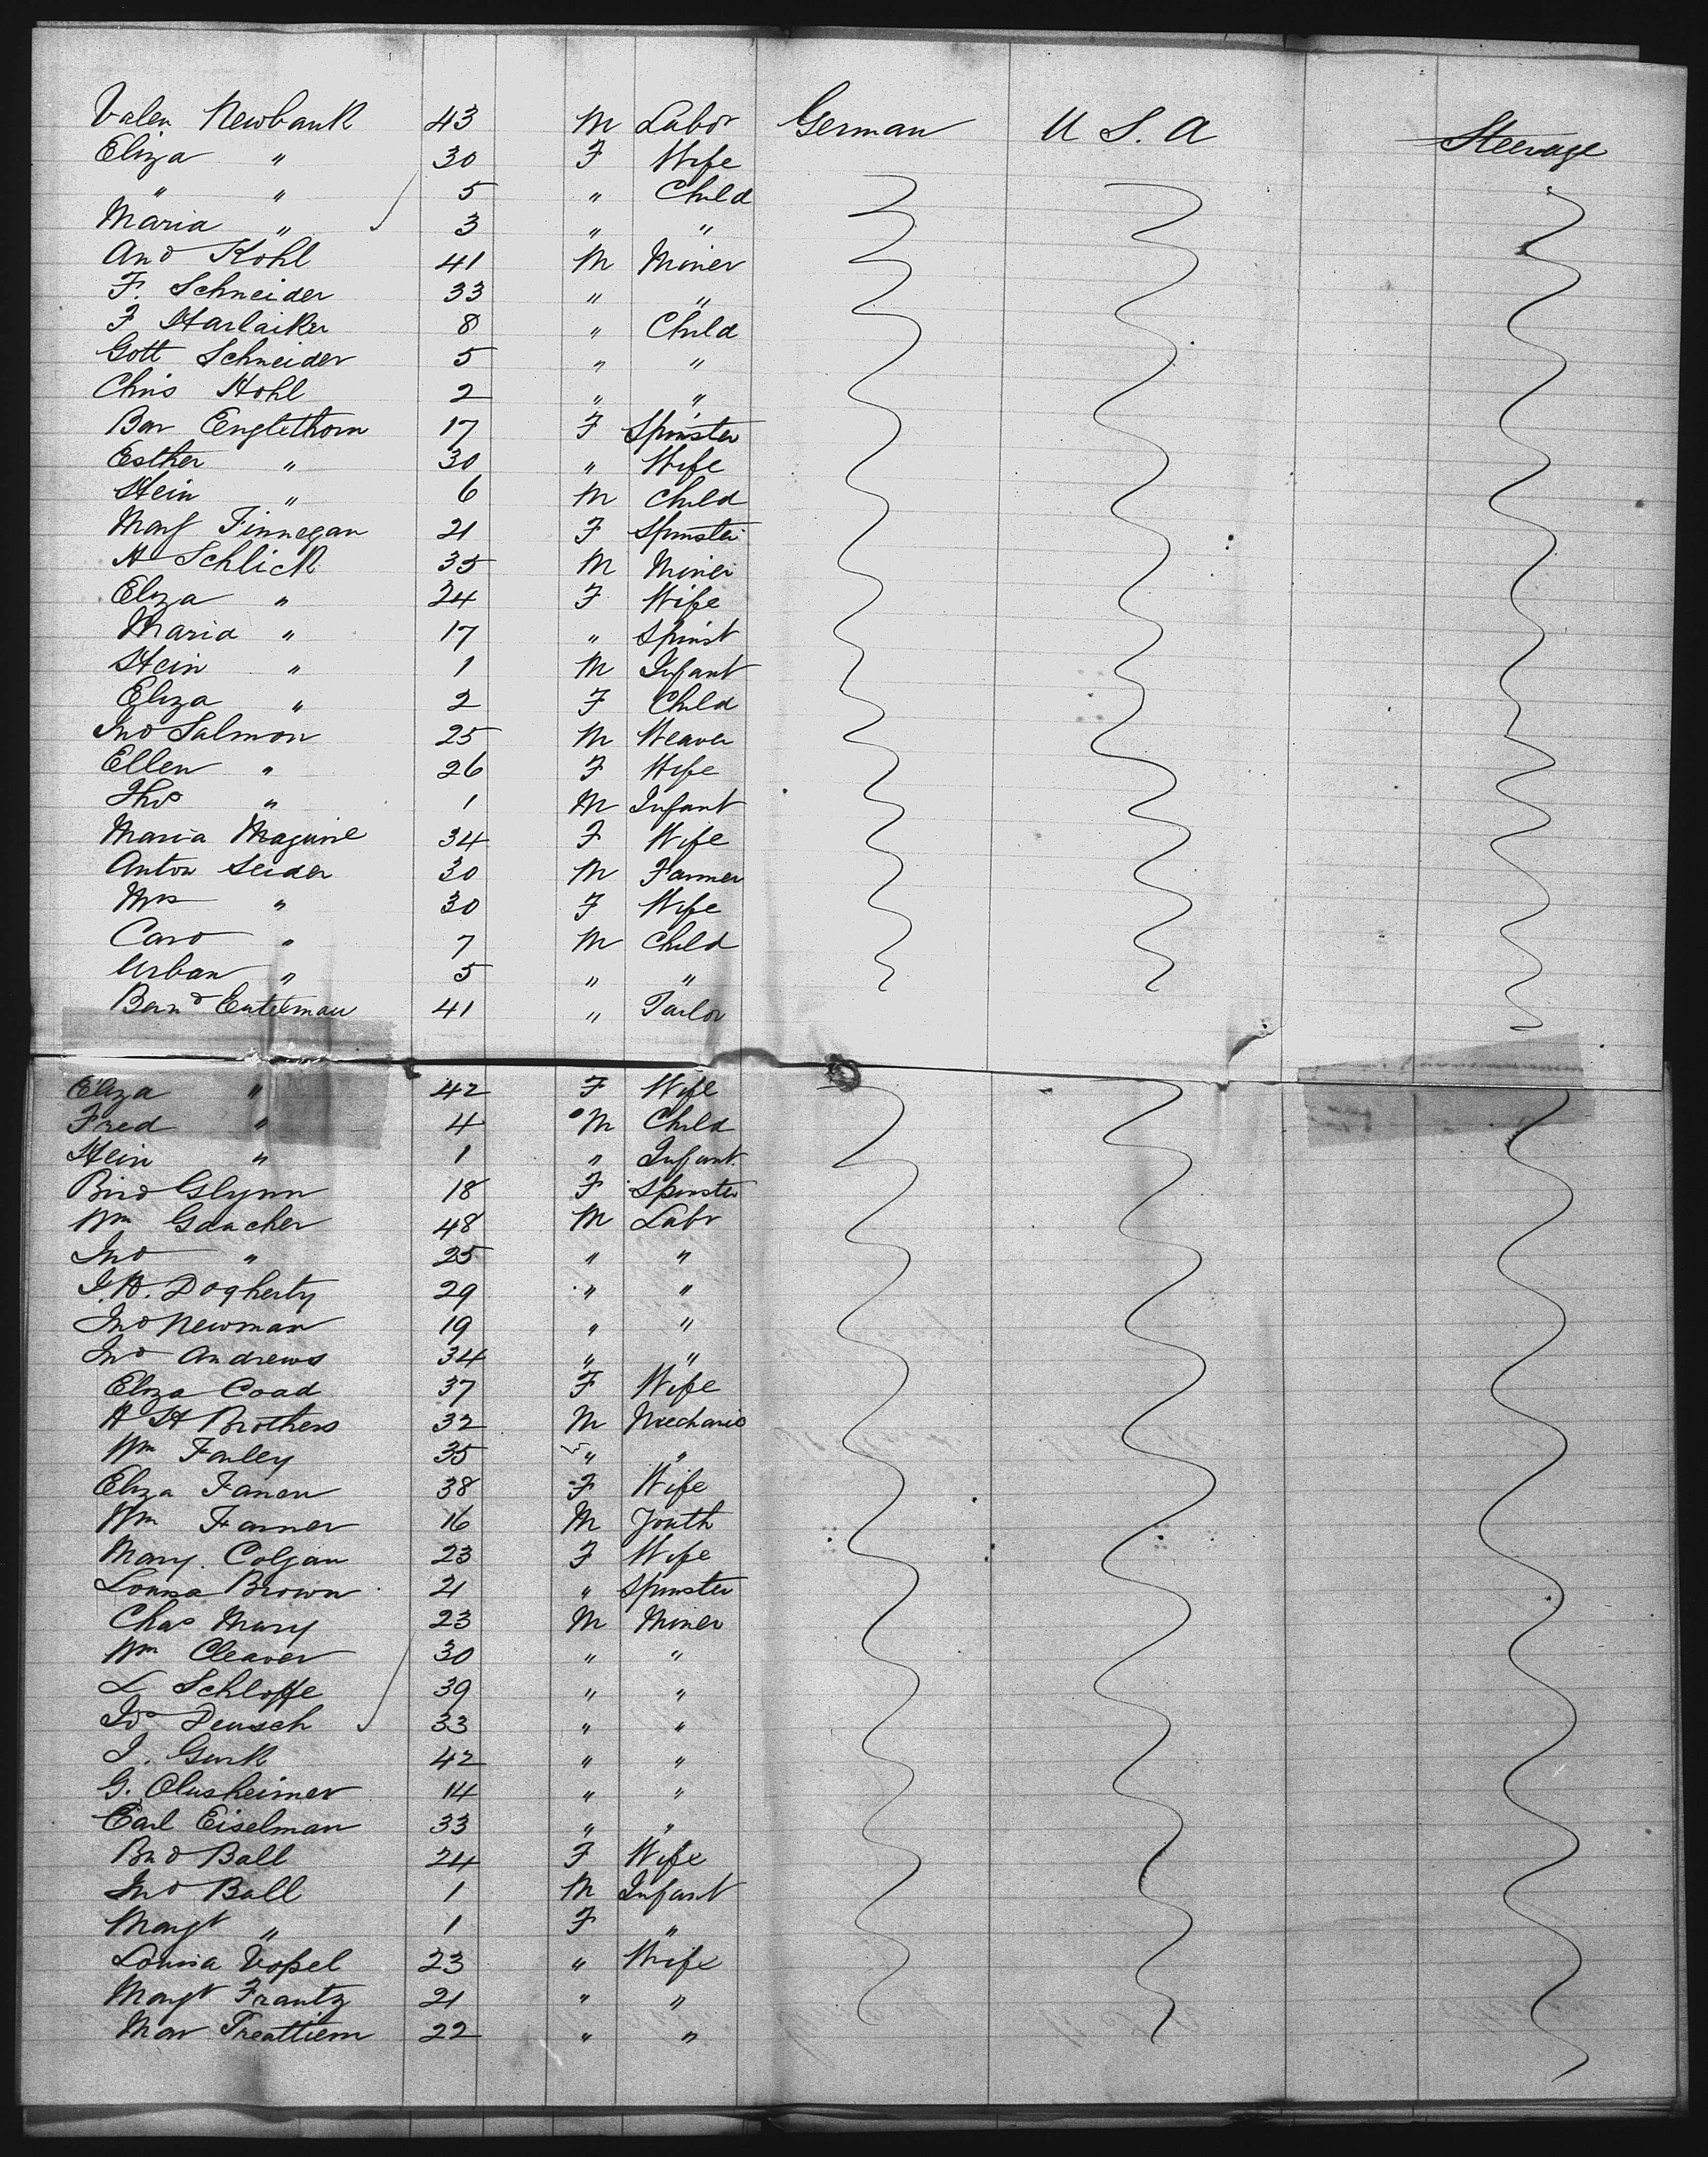 Valen Newbank 43 M Labor German U S. A Steerage
Eliza " 30 F Wife
" " 5 " Child
Maria " 3 " "
And Kohl 41 M Miner
F. Schneider 33 " "
F Harlaiker 8 " Child
Gott Schneider 5 " "
Chris Hohl 2 " "
Bar Englethorn 17 F Spinster
Esther " 30 " Wife
Hein " 6 M Child
Marg Finnegan 21 F Spinster
H Schlick 35 M Miner
Eliza " 24 F Wife
Maria " 17 " Spinst
Hein " 1 M Infant
Eliza " 2 F Child
Jno Salmon 25 M Weaver
Ellen " 26 F Wife
Thos " 1 M Infant
Maria Maguire 34 F Wife
Anton Seider 30 M Farmer
Mrs " 30 F Wife
Caro " 7 M Child
Urban " 5 " "
Bernd Entieman 41 " Tailor
Eliza " 42 F Wife
Fred " 4 M Child
Hein " 1 " Infant
Bird Glynn 18 F Spinster
Wm Gaucher 48 M Labr
Jno " 25 " "
J. H. Dogherty 29 " "
Jno Newman 19 " "
Jno Andrews 34 " "
Eliza Coad 37 F Wife
H H Brothers 32 M Mechanic
Wm Farley 35 " "
Eliza Faner 38 F Wife
Wm Farner 16 M Youth
Mary. Colgan 23 F Wife
Louisa Brown 21 " Spinster
Chas Mary 23 M Miner
Wm Cleaver 30 " "
L Schloffe 39 " "
Jos Deusch 33 " "
J. Gurk 42 " "
G. Olusheimer 14 " "
Carl Eiselman 33 " "
Brd Ball 24 F Wife
Jno Ball 1 M Infant
Margt " 1 F "
Louisa Vopel 23 " Wife
Margt Frantz 21 " "
Mar Treattiem 22 " "